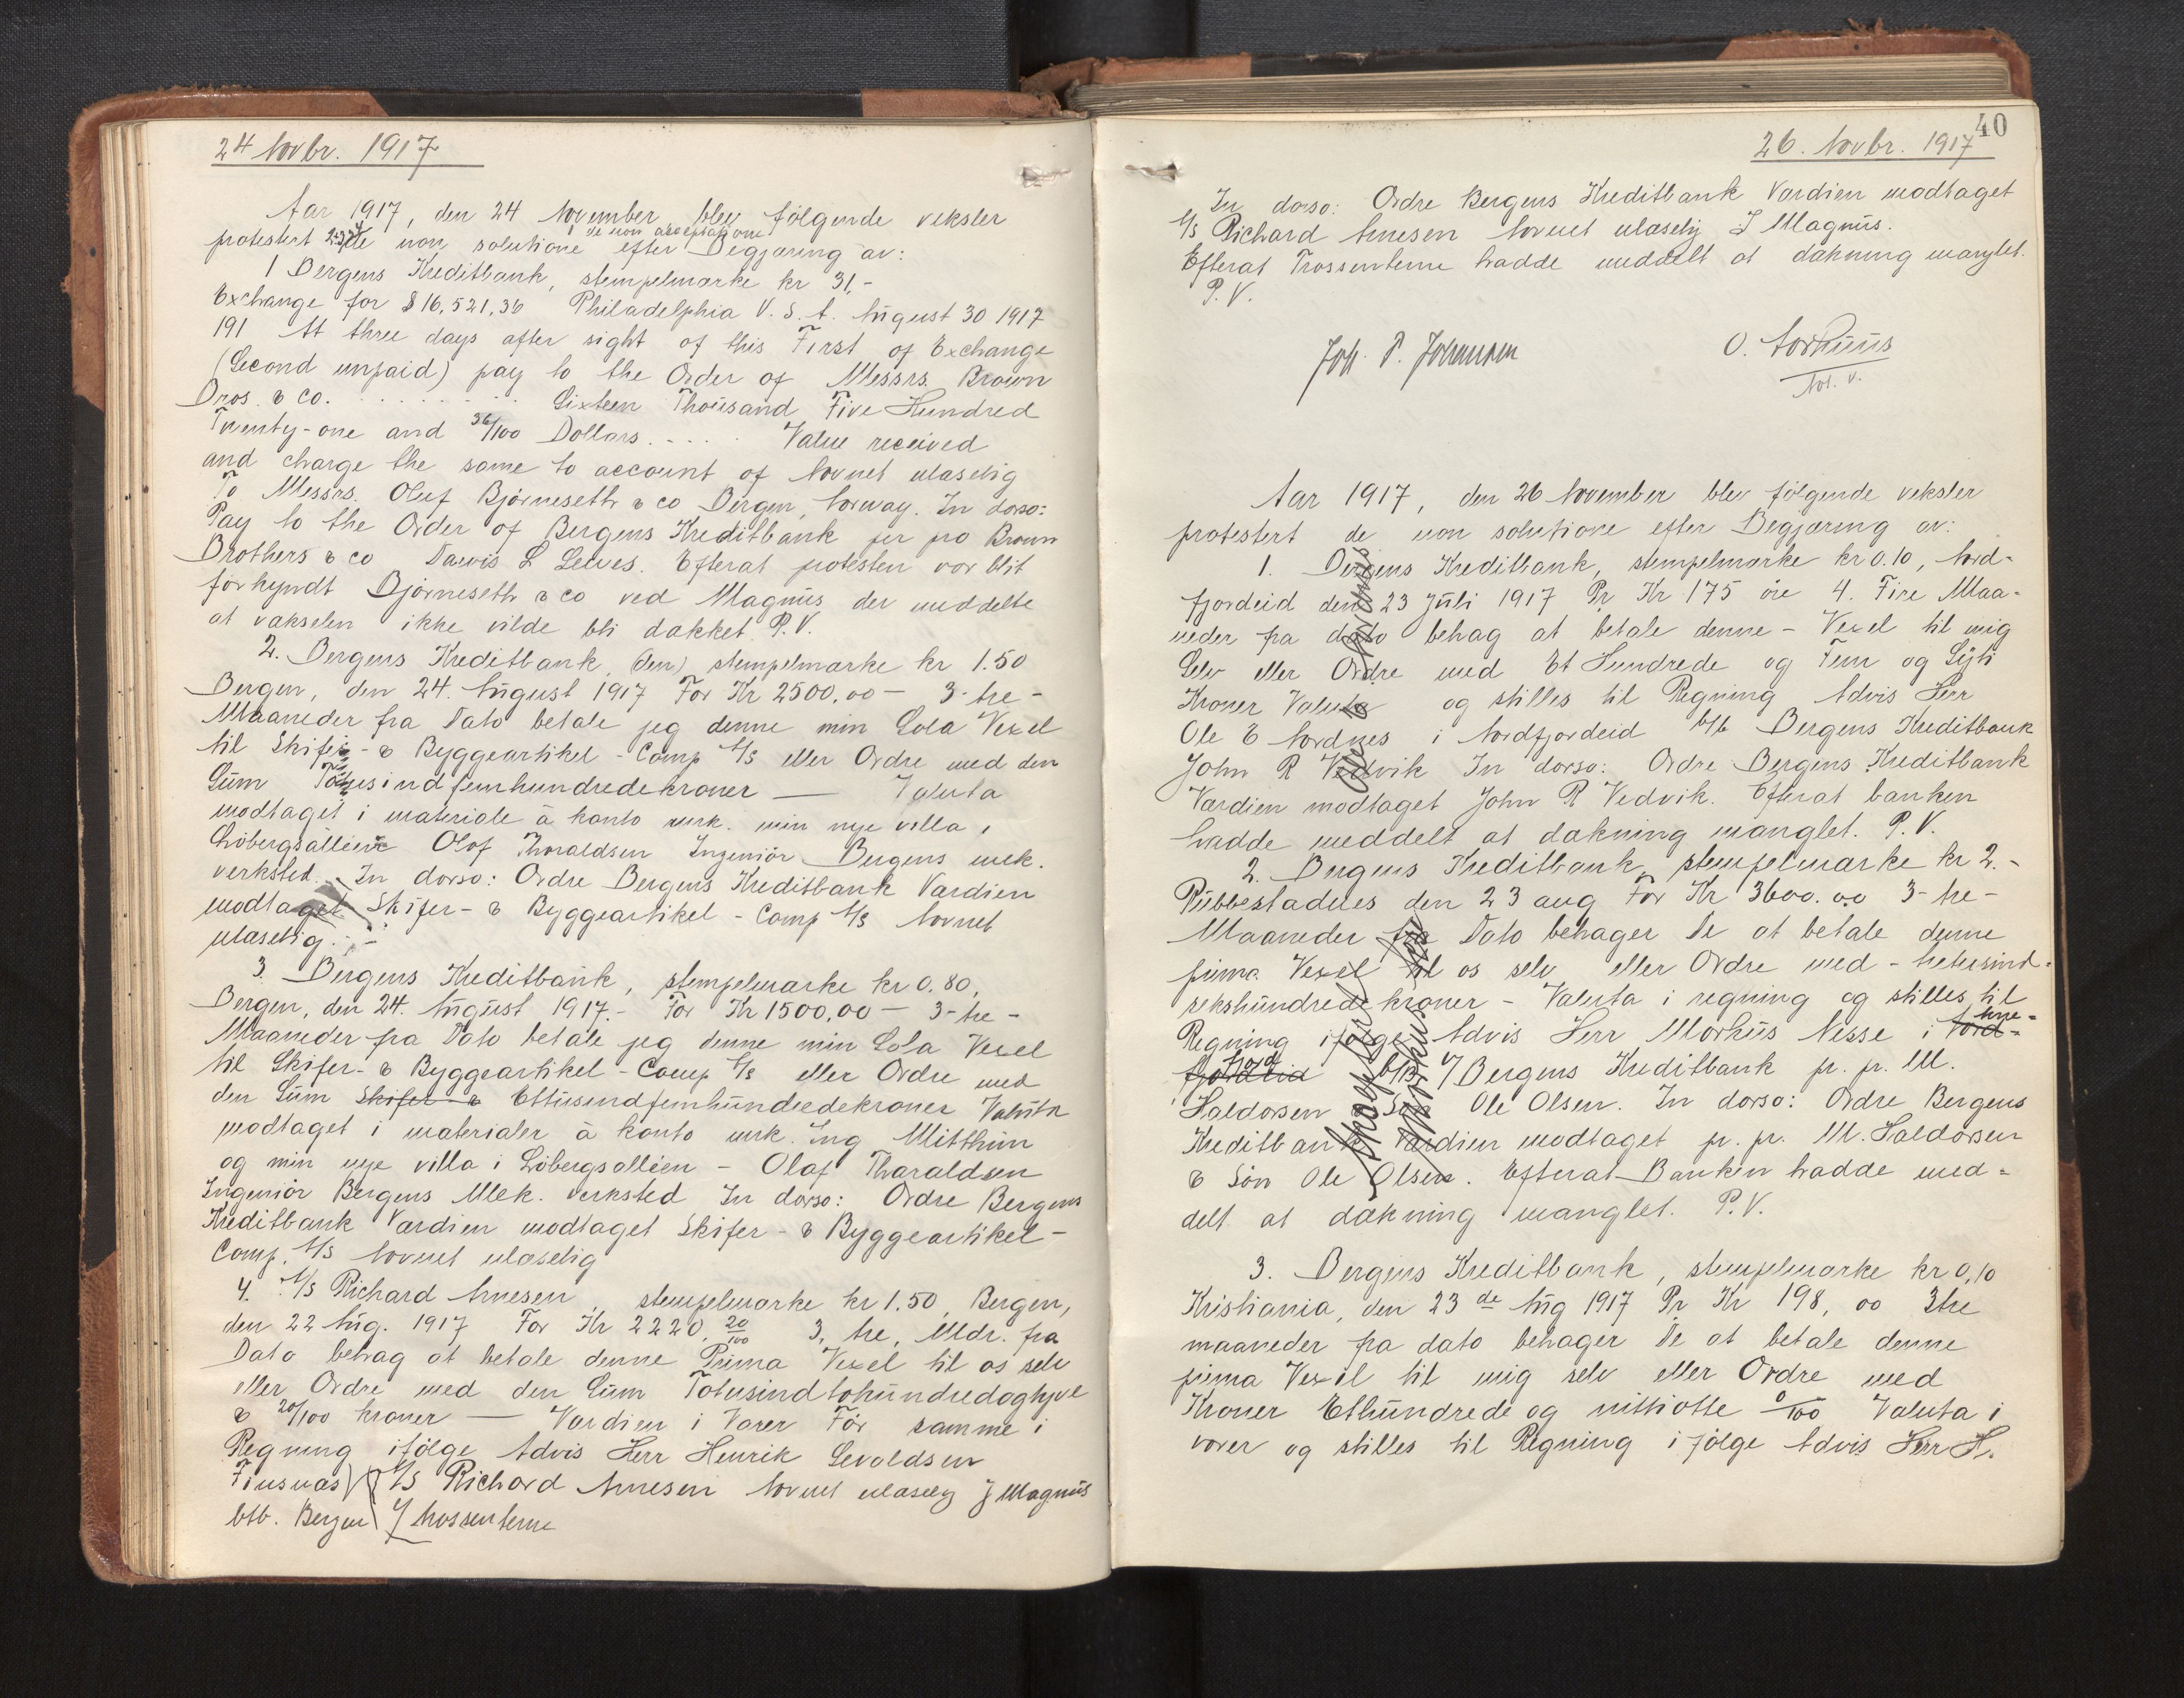 24 Novbr. 1917
Aar 1917, den 24 November blev følgende veksler
de non acceptatione
protestert 2, 3, 4 de non solutione efter Begjæring av:
1 Bergens Kreditbank, stempelmærke kr 31,-
Exchange for $16,521,36 Philadelphia U. S. A. August 30 1917
191 At three days after sight of this First of Exchange
(Second unpaid) pay to the Order of Messrs. Brown
Bros. & Co. . . . . . . . . Sixteen Thousand Five Hundred
Twenty-one and 36/100 Dollars. - . . . Value received
and charge the same to account of Navnet ulæselig
To Messrs. Oluf Bjørneseth & Co Bergen, Norway. In dorso:
Pay to the Order of Bergens Kreditbank per pro Brown
Brothers & Co L Selves. Efterat protesten var blit
forkyndt Bjørneseth & Co ved Magnus der meddelte
at vækselen ikke vilde bli dækket P. V.
2. Bergens Kreditbank, (den) stempelmærke kr 1.50
Bergen, den 24. August 1917 For Kr 2500,00 - 3- tre -
Maaneder fra Dato betale jeg denne min Sola Vexel
til Skifer- & Byggeartikel - Comp A/S eller Ordre med den
Sum Totusindfemhundredekroner — Valuta
modtaget i materiale à konto mrk. min nye villa,
Løbergsalleen Olaf Tharaldsen Ingeniør Bergens mek.
verksted. In dorso: Ordre Bergens Kreditbank Værdien
modtaget Skifer- & Byggeartikel - Comp A/S Navnet
ulæselig. -
3. Bergens Kreditbank, stempelmærke kr 0.80,
Bergen, den 24. August 1917.- For Kr 1500,00 - 3- tre -
Maaneder fra Dato betale jeg denne min Sola Vexel
til Skifer- & Byggeartikel - Comp A/S eller Ordre med
den Sum Skifer & Ettusendfemhundredekroner Valuta
modtaget i materialer à konto mrk. Ing Mitthun
og min nye villa i Løbergsalléen - Olaf Tharaldsen
Ingeniør Bergens Mek. Verksted In dorso: Ordre Bergens
Kreditbank Værdien modtaget Skifer - & Byggeartikel -
Comp. A/S Navnet ulæselig
4. A/S Richard Arnesen stempelmærke kr 1.50, Bergen,
den 22 Aug. 1917 For Kr 2220, 20/100 3, tre, Mdr. fra
Dato behag at betale denne Prima Vexel til os selv
eller Ordre med den Sum Totusindtohundredogtyve
& 20/100 kroner — Værdien i Varer For samme i
Regning ifølge Advis Herr Henrik Sevaldsen
Finsnæs A/S Richard Arnesen Navnet ulæselig J Magnus
btb. Bergen
40
26. Novbr. 1917
In dorso: Ordre Bergens Kreditbank Værdien modtaget
A/S Richard Arnesen Navnet ulæselig J Magnus.
Efterat Trassenterne hadde meddelt at dækning manglet.
P. V.
Joh. P. Johansen
O. Aarhuus
Not. v.
Aar 1917, den 26 November blev følgende veksler
protestert de non solutione efter Begjæring av:
1. Bergens Kreditbank, stempelmærke kr 0.10, Nord-
fjordeid den 23 Juli 1917 Pr Kr 175 øre 4. Fire Maa-
neder fra dato behag at betale denne - Vexel til mig
Selv eller Ordre med Et Hundrede og Fem og Sytti
Kroner Valuta og stilles til Regning Advis Herr
Ole E Nordnes i Nordfjordeid btb Bergens Kreditbank
John R Vedvik In dorso: Ordre Bergens Kreditbank
Værdien modtaget John R Vedvik. Efterat banken
hadde meddelt at dækning manglet. P. V.
2. Bergens Kreditbank, stempelmærke kr 2.-
Rubbestadnes den 23 aug For Kr 3600.00 3- tre -
Maaneder fra Dato behager De at betale denne
prima Vexel til os selv eller Ordre med - tretusind-
sekshundrede kroner - Valuta i regning og stilles til
Regning ifølge Advis Herr Markus Nesse i Nord-
fjordeid Bergens Kreditbank pr. pr. M.
Haldorsen & Søn Ole Olsen. In dorso: Ordre Bergens
Kreditbank Værdien modtaget pr. pr. M. Haldorsen
& Søn Ole Olsen. Efterat Banken hadde med-
delt at dækning manglet. P. V.
3. Bergens Kreditbank, stempelmærke kr 0,10
Kristiania, den 23 de Aug 1917 Pr Kr 198, 00 3tre
maaneder fra dato behager De at betale denne
prima Vexel til mig selv eller Ordre med
Kroner Ethundrede og nittiotte 0/100 Valuta i
varer og stilles til Regning i følge Advis Herr H.